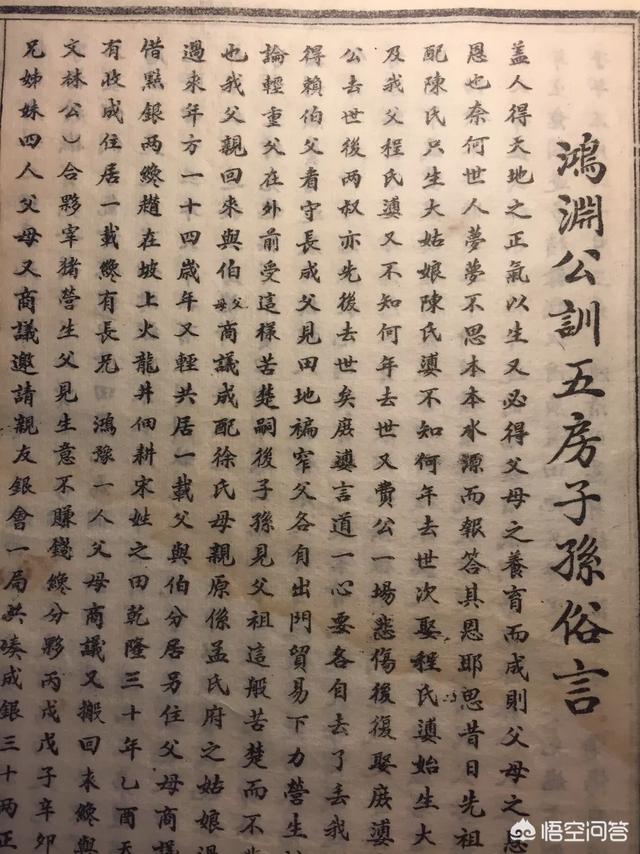 鴻淵公訓五房子孫俗言
盖人得天地之正氣以生又必得父母之養育而成則父母之恩
恩也奈何世人夢夢不思本本水源而報答其恩耶思昔日先祖
配陳氏只生大姑娘陳氏婆不知何年去世次娶程氏婆始生大
及我父程氏婆又不知何年去世又費公一場悲傷後復娶庹婆
公去世後两叔亦先後去世矣庹婆言道一心要各自去了丢我
得賴伯父者守長成父見田地褊窄父各自出門貿易下力營生
論輕重父在外前受這樣苦楚嗣後子孫見父祖這般苦楚而不
也我父親回來與伯父母商議成配徐氏母親原係孟氏府之姑娘過
過來年方一十四歲年又輕共居一載父與伯分居另住父母商議
借點銀两纔趲在坡上火龍井佃耕宋姓之田乾隆三十年乙酉天
有收成住居一載纔有長兄 鴻豫一人父母商議又搬回来纔與
文林公）合夥宰猪營生父見生意不賺錢纔分夥丙戌戊子辛卯
兄姊妹四人父母又商議邀請親友銀會一局共凑成銀三十两正
悟空问答